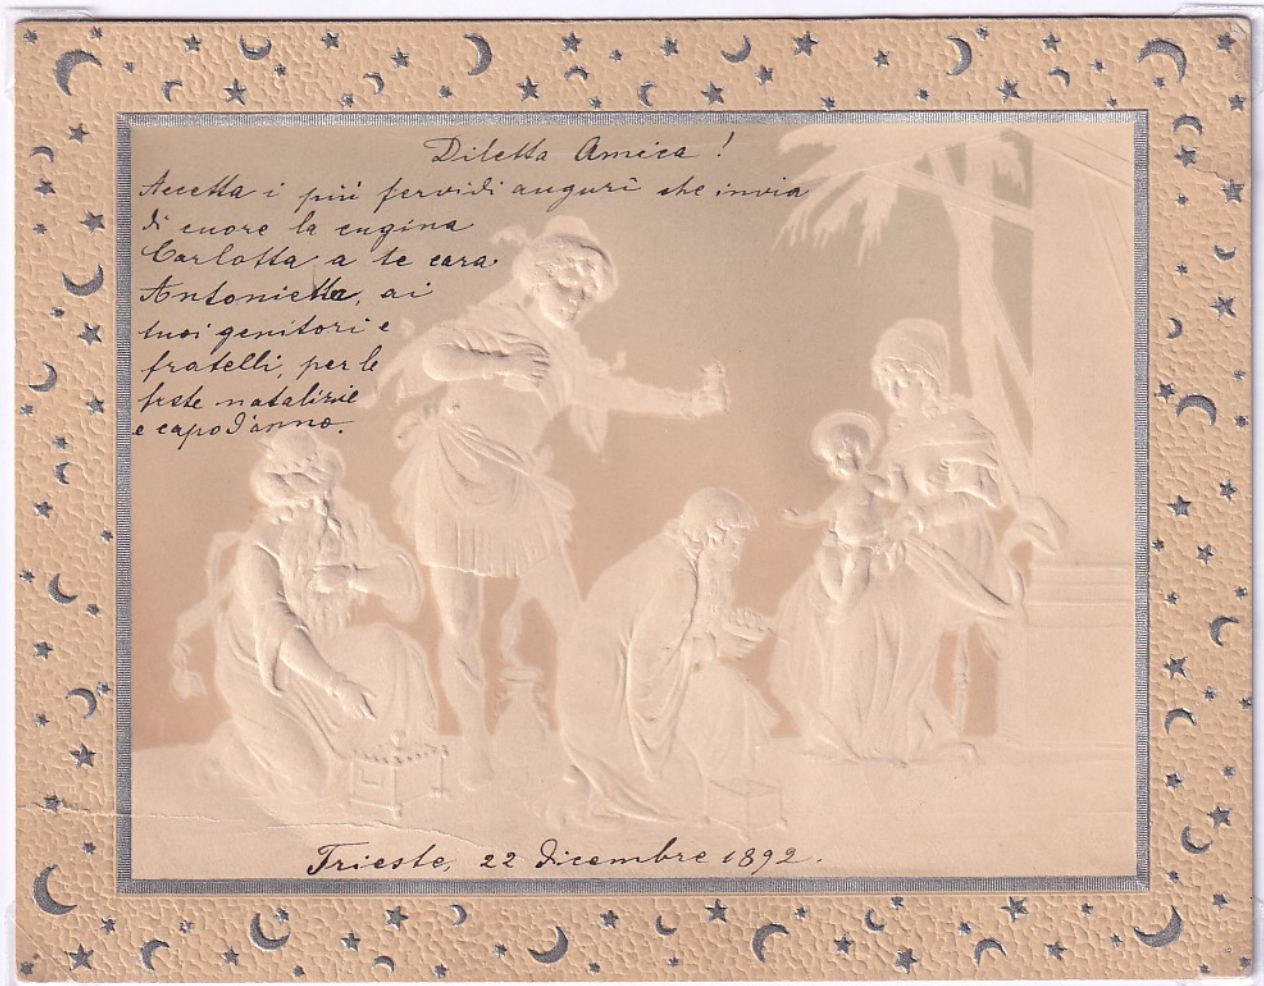 Diletta Amica!
Accetta i più fervidi augurî che invia
di cuore la cugina
Carlotta a te cara
Antonietta, ai
tuoi genitori e
fratelli, per le
feste natalizie
e capo d'anno.
Trieste, 22 dicembre 1892.